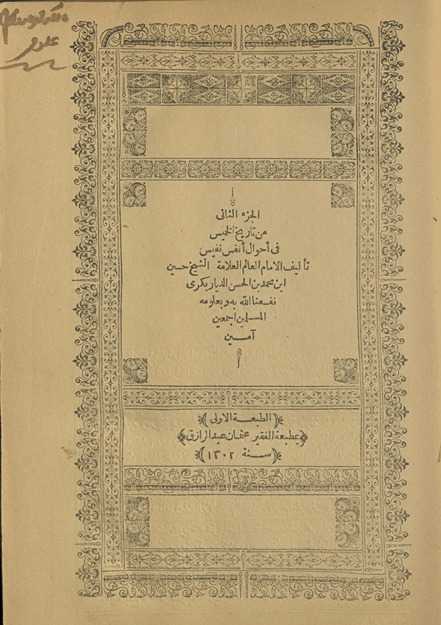 الجزء الثانى
من تاريخ الخميس
فى أحوال أنفس نفيس
تأليف الامام العالم العلامة الشيخ حسين
ابن محمد بن الحسن الديار بكرى
نفعنا الله به وبعلومه
المسلمين أجمعين
آمين
(الطبعة الاولى)
بمطبعة الفقير عثمان عبد الرازق
(سنة ١٣٠٢)